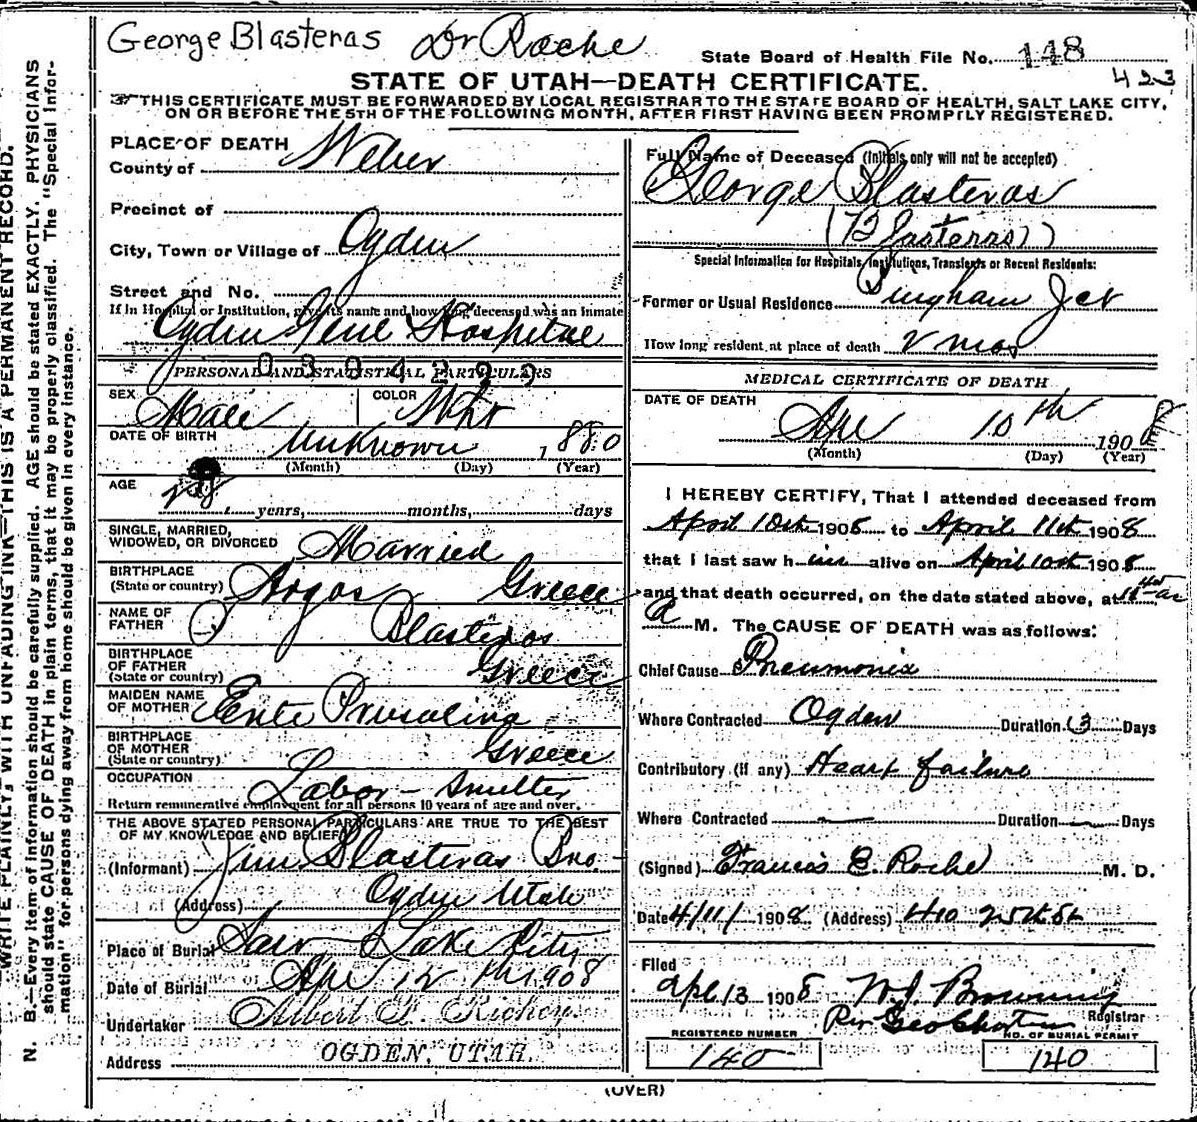 George Blasteras Dr Roche
State Board of Health File No. 148
423
STATE OF UTAH—DEATH CERTIFICATE.
THIS CERTIFICATE MUST BE FORWARDED BY LOCAL REGISTRAR TO THE STATE BOARD OF HEALTH, SALT LAKE CITY,
ON OR BEFORE THE 5TH OF THE FOLLOWING MONTH, AFTER FIRST HAVING BEEN PROMPTLY REGISTERED.
WRITE PLAINLY, WITH UNFADING INK—THIS IS A PERMANENT RECORD.
N. B.—Every item of information should be carefully supplied. AGE should be stated EXACTLY. PHYSICIANS
should state CAUSE OF DEATH in plain terms, that it may be properly classified. The "Special Infor-
mation" for persons dying away from home should be given in every instance.
PLACE OF DEATH
County of Weber
Precinct of
City, Town or Village of Ogden
Street and No.
If in Hospital or Institution, give its name and how long deceased was an inmate
Ogden Genl Hospital
PERSONAL AND STATISTICAL PARTICULARS
SEX Male COLOR Wht
DATE OF BIRTH Unknown , 1880
(Month) (Day) (Year)
AGE 28 years, months, days
SINGLE, MARRIED,
WIDOWED, OR DIVORCED Married
BIRTHPLACE
(State or country) Argos Greece
NAME OF
FATHER Blasteras
BIRTHPLACE
OF FATHER
(State or country) Greece
MAIDEN NAME
OF MOTHER
BIRTHPLACE
OF MOTHER
(State or country) Greece
OCCUPATION Labor - Smelter
Return remunerative employment for all persons 10 years of age and over.
THE ABOVE STATED PERSONAL PARTICULARS ARE TRUE TO THE BEST
OF MY KNOWLEDGE AND BELIEF
(Informant) Jim Blasteras Bro.
(Address) Ogden Utah
Place of Burial Salt Lake City
Date of Burial Apr 12th 1908
Undertaker Albert
Address OGDEN, UTAH.
Full Name of Deceased (Initials only will not be accepted)
George Blasteras
(Blasterns)
Special Information for Hospitals, Institutions, Transients or Recent Residents:
Former or Usual Residence Bingham Jct
How long resident at place of death 2 mos
MEDICAL CERTIFICATE OF DEATH
DATE OF DEATH
Apr 10th 1908
(Month) (Day) (Year)
I HEREBY CERTIFY, That I attended deceased from
April 10th 1908 to April 11th 1908
that I last saw h im alive on April 10th 1908
and that death occurred, on the date stated above, at
A M. The CAUSE OF DEATH was as follows:
Chief Cause Pneumonia
Where Contracted Ogden Duration 3 Days
Contributory (if any) Heart failure
Where Contracted — Duration — Days
(Signed) Francis E. Roche M. D.
Date 4/11/ 1908 (Address) 410 25th St
Filed
Apl 13 1908 W. J. Browning
Registrar
Per Geo
REGISTERED NUMBER NO. OF BURIAL PERMIT
140 140
(OVER)